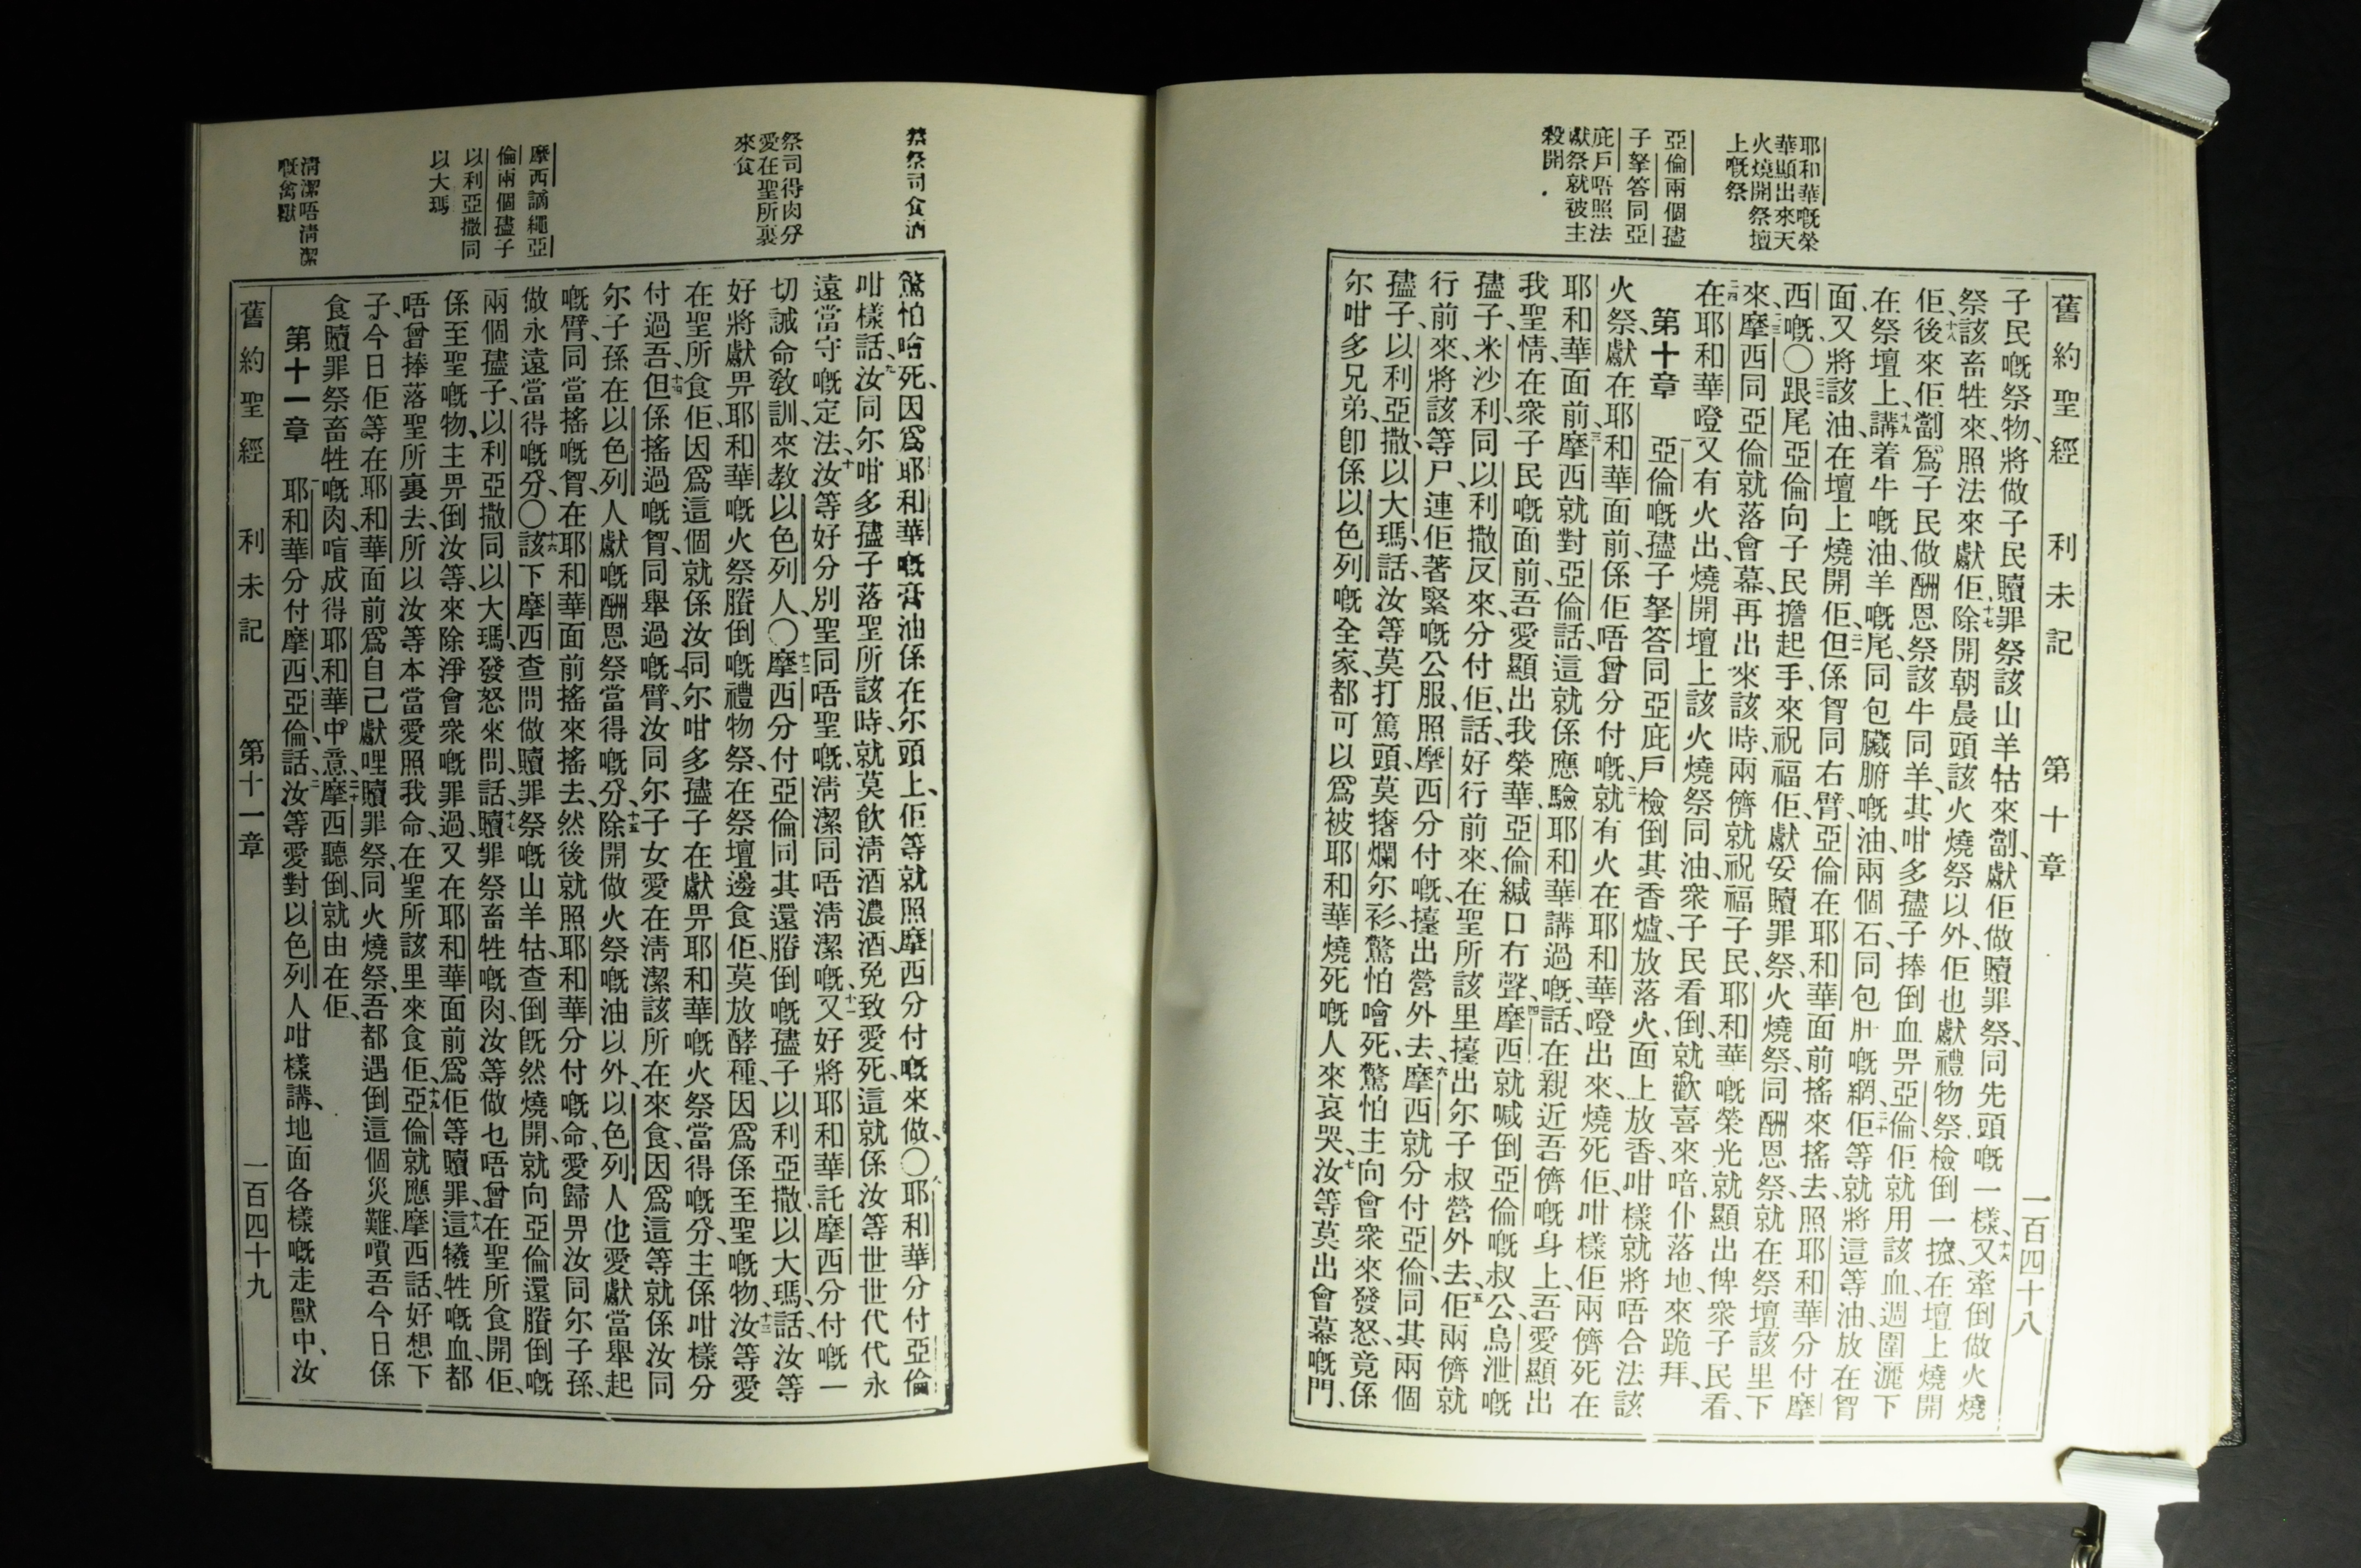 舊約聖經 利未記 第十章 一百四十八
耶和華嘅榮
華顯出來天
火燒開祭壇
上嘅祭
亞倫兩個孻
子拏答同亞
庇戶唔照法
獻祭就被主
殺開
子民嘅祭物、將做子民贖罪祭該山羊牯來劏、獻佢做贖罪祭、同先頭嘅一樣、十六又牽倒做火燒
祭該畜牲來照法來獻佢、十七除開朝晨頭該火燒祭以外、佢也獻禮物祭、檢倒一揔、在壇上燒開
佢、十八後來佢劏爲子民做酬恩祭該牛同羊、其咁多孻子捧倒血畀亞倫、佢就用該血、週圍灑下
在祭壇上、十九講着牛嘅油、羊嘅尾、同包臟腑嘅油、兩個石、同包肝嘅網、二十佢等就將這等油放在胷
面、又將該油、在壇上燒開佢、二一但係胷同右臂、亞倫在耶和華面前搖來搖去、照耶和華分付摩
西嘅、〇二二跟尾亞倫向子民擔起手、來祝福佢、獻妥贖罪祭、火燒祭、同酬恩祭、就在祭壇該里下
來、二三摩西同亞倫就落會幕、再出來該時、兩儕就祝福子民、耶和華嘅榮光、就顯出俾衆子民看、
二四在耶和華磴又有火出、燒開壇上該火燒祭同油、衆子民看倒、就歡喜來喑、仆落地、來跪拜、
第十章 一亞倫嘅孻子拏答同亞庇戶、檢倒其香爐、放落火、面上放香、咁樣就將唔合法該
火祭、獻在耶和華面前、係佢唔曾分付嘅、二就有火在耶和華磴出來、燒死佢、咁樣佢兩儕死在
耶和華面前、三摩西就對亞倫話、這就係應驗耶和華講過嘅話、在親近吾儕嘅身上、吾愛顯出
我聖情、在衆子民嘅面前、吾愛顯出我榮華、亞倫緘口冇聲、四摩西就喊倒亞倫嘅叔公、烏泄嘅
孻子、米沙利、同以利撒反來、分付佢、話、好行前來、在聖所該里擡出尔子叔營外去、五佢兩儕就
行前來、將該等尸、連佢著緊嘅公服、照摩西分付嘅、擡出營外去、六摩西就分付亞倫、同其兩個
孻子、以利亞撒、以大瑪、話、汝等莫打篤頭、莫撦爛尔衫、驚怕噲死、驚怕主向會衆來發怒、竟係
尔咁多兄弟、卽係以色列嘅全家、都可以爲被耶和華燒死嘅人來哀哭、七汝等莫出會幕嘅門、
祭祭司食酒
祭司得肉分
愛在聖所裏
來食
摩西謫繩亞
倫兩個孻子
以利亞撒同
以大瑪
淸潔唔淸潔
嘅禽獸
驚怕噲死、因爲耶和華嘅膏油係在尔頭上、佢等就照摩西分付嘅來做、〇八耶和華分付亞倫
咁樣話、九汝同尔咁多孻子落聖所該時、就莫飮淸酒濃酒、免致愛死、這就係汝等世世代代永
遠當守嘅定法、十汝等好分別聖同唔聖嘅、淸潔同唔淸潔嘅、十一又好將耶和華託摩西分付嘅一
切誡命敎訓、來教以色列人、〇十二摩西分付亞倫同其還賸倒嘅孻子以利亞撒、以大瑪、話、汝等
好將獻畀耶和華嘅火祭賸倒嘅禮物祭、在祭壇邊食佢、莫放酵種、因爲係至聖嘅物、十三汝等愛
在聖所食佢、因爲這個就係汝同尔咁多孻子在獻畀耶和華嘅火祭當得嘅分、主係咁樣分
付過吾、十四但係搖過嘅胷、同舉過嘅臂、汝同尔子女愛在淸潔該所在來食、因爲這等就係汝同
尔子孫在以色列人獻嘅酬恩祭當得嘅分、十五除開做火祭嘅油以外、以色列人也愛獻當舉起
嘅臂、同當搖嘅胷、在耶和華面前搖來搖去、然後就照耶和華分付嘅命、愛歸畀汝同尔子孫、
做永遠當得嘅分、〇十六該下摩西查問做贖罪祭嘅山羊牯、查倒旣然燒開、就向亞倫還賸倒嘅
兩個孻子、以利亞撒同以大瑪、發怒來問、話、十七贖罪祭畜牲嘅肉、汝等做乜唔曾在聖所食開佢、
係至聖嘅物、主畀倒汝等、來除淨會衆嘅罪過、又在耶和華面前、爲佢等贖罪、十八這犧牲嘅血、都
唔曾捧落聖所裏去、所以汝等本當愛照我命、在聖所該里來食佢、十九亞倫就應摩西話、好想下
子、今日佢等在耶和華面前、爲自己獻哩贖罪祭、同火燒祭、吾都遇倒這個災難、嘳吾今日係
食贖罪祭畜牲嘅肉、喧成得耶和華中意、二十摩西聽倒、就由在佢、
第十一章 一耶和華分付摩西亞倫、話、二汝等愛對以色列人咁樣講、地面各樣嘅走獸中、汝
舊約聖經 利未記 第十一章 一百四十九